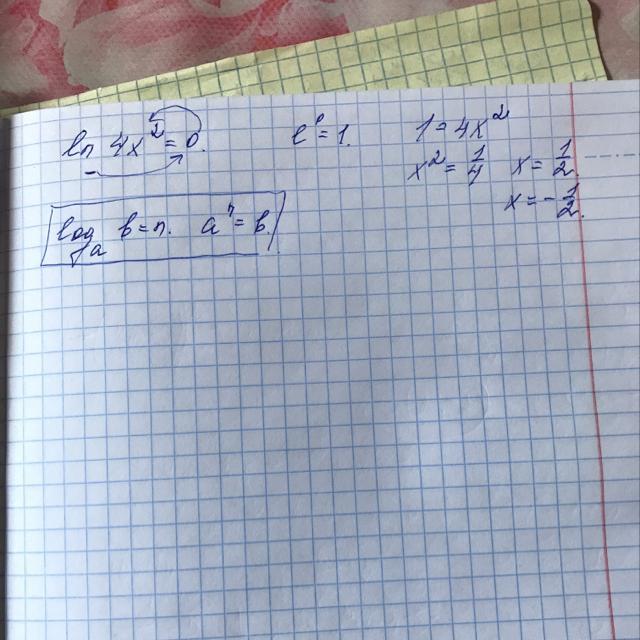 ln 4x² = 0. e⁰ = 1. 1 = 4x²
x² = 1/4 x = 1/2.
x = -1/2.
logₐ b = n. aⁿ = b.